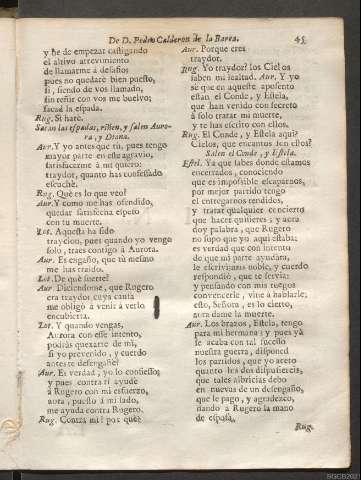 De D. Pedro Calderon de la Barca. 45
y he de empezar castigando
el altivo atrevimiento
de llamarme à desafio;
pues no quedarè bien puesto,
si, siendo de vos llamado,
sin reñir con vos me buelvo;
sacad la espada.
Rug. Sì harè.
Sacan las espadas, riñen, y salen Auro-
ra, y Diana.
Aur. Y yo antes que tù, pues tengo
mayor parte en este agravio,
satisfacerme à mi quiero:
traydor, quanto has confessado
escuchè.
Rug. Què es lo que veo?
Aur. Y como me has ofendido,
quedar satisfecha espero
con tu muerte.
Lot. Aquesta ha sido
traycion, pues quando yo vengo
solo, traes contigo à Aurora.
Aur. Es engaño, que tù mesmo
me has traido.
Lot. De què suerte?
Aur. Diciendome, que Rugero
era traydor, cuya causa
me obligò à venir à verlo
encubierta.
Lot. Y quando vengas,
Aurora con esse intento,
podràs quexarte de mi,
si yo prevenido, y cuerdo
antes te desengañè?
Aur. Es verdad, yo lo confiesso;
y pues contra ti ayudè
à Rugero con mi esfuerzo,
aora, puesto à mi lado,
me ayuda contra Rugero.
Rug. Contra mi? por què?
Aur. Porque eres
traydor.
Rug. Yo traydor? los Cielos
saben mi lealtad. Aur. Y yo
sè que en aqueste aposento
estàn el Conde, y Estela,
que han venido con secreto
à solo tratar mi muerte,
y te has escrito con ellos.
Rug. El Conde, y Estela aqui?
Cielos, que encantos son estos?
Salen el Conde, y Estela.
Estel. Yà que sabes donde estamos
encerrados, conociendo
que es impossible escaparnos,
por mejor partido tengo
el entregarnos rendidos,
y tratar qualquier concierto
que hacer quisieres; y aora
doy palabra, que Rugero
no supo que yo aqui estaba;
es verdad que con intento
de que mi parte ayudàra,
le escriviamos noble, y cuerdo
respondiò, que te servia;
y pensando con mis ruegos
convencerle, vine à hablarle;
esto, Señora, es lo cierto,
aora dame la muerte.
Aur. Los brazos, Estela, tengo
para mi hermana; y pues yà
se acaba con tal sucesso
nuestra guerra, disponed
los partidos, que yo aceto
quanto los dos dispusiereis,
que tales albricias debo
en nuevas de un desengaño,
que le pago, y agradezco,
dando à Rugero la mano
de esposa.
Rug.
BGCB202